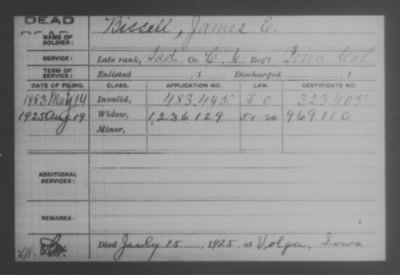 DEAD
NAME OF SOLDIER: Bissell, James E.
SERVICE: Late rank, Co. C, 6 Reg't Iowa Cav
TERM OF SERVICE: Enlisted , 1 Discharged , 1
DATE OF FILING. CLASS. APPLICATION NO. LAW. CERTIFICATE NO.
1883 May 14 Invalid, 483,445 323,405
1925 Aug 19 Widow, 1,236,129 969110
Minor,
ADDITIONAL SERVICES:
REMARKS:
Died July 15, 1925, at Volga, Iowa